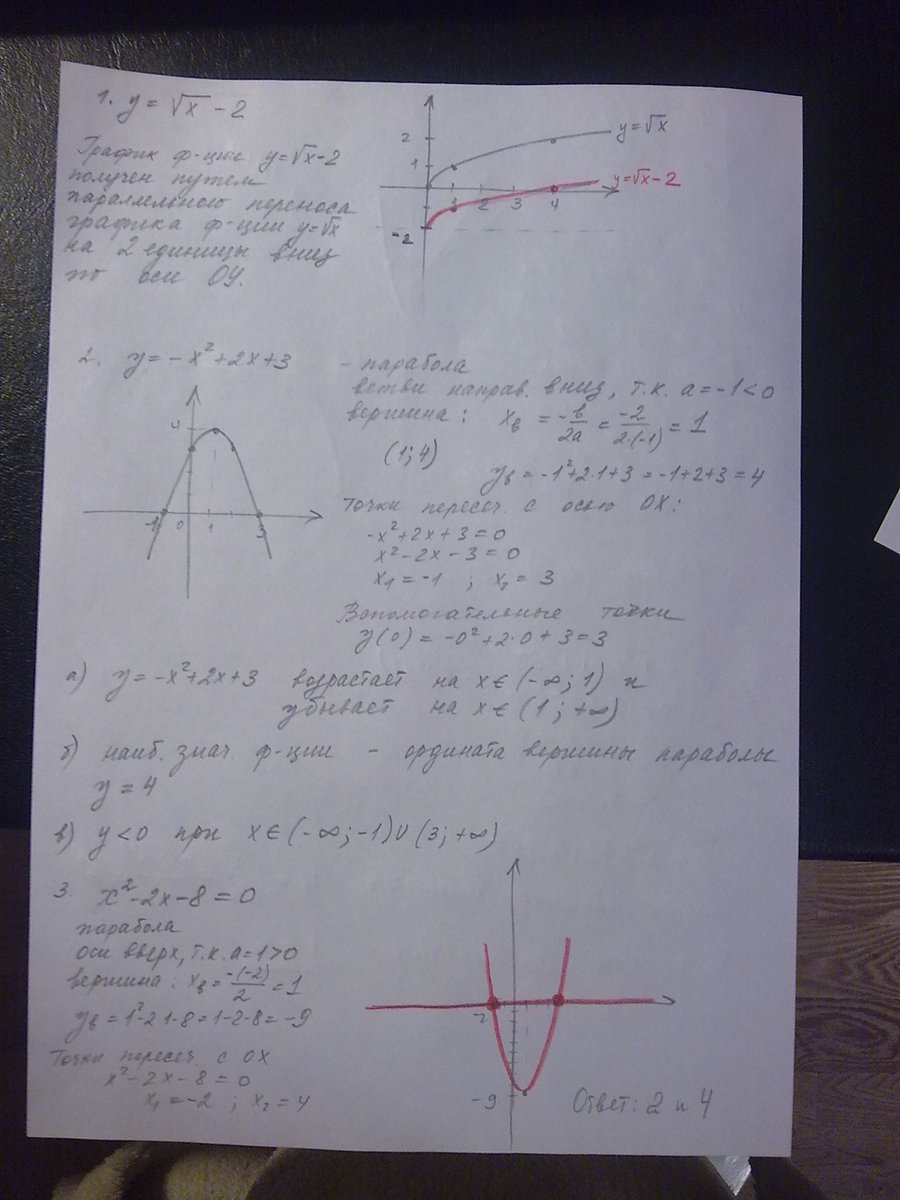 1. y = √x - 2
График ф-ции y=√x-2
получен путем
параллельного переноса
графика ф-ции y=√x
на 2 единицы вниз
по оси ОУ.
2
1
y=√x
y=√x-2
1 2 3 4
-2
2. y = -x²+2x+3
- парабола
ветви направ. вниз, т.к. a=-1<0
вершина: xв = -в/2a = -2/2·(-1) = 1
(1;4)
yв = -1²+2·1+3 = -1+2+3 = 4
Точки пересеч. с осью ОХ:
-x²+2x+3=0
x²-2x-3=0
x₁=-1 ; x₂=3
Вспомогательные точки
y(0) = -0²+2·0+3=3
4
-1 0 1 3
а) y=-x²+2x+3 возрастает на x∈(-∞;1) и
убывает на x∈(1;+∞)
б) наиб. знач. ф-ции - ордината вершины параболы
y=4
в) y<0 при x∈(-∞;-1)∪(3;+∞)
3. x²-2x-8=0
парабола
оси вверх, т.к. a=1>0
вершина: xв = -(-2)/2 = 1
yв = 1²-2·1-8=1-2-8=-9
Точки пересеч. с ОХ
x²-2x-8=0
x₁=-2 ; x₂=4
-2
-9
Ответ: 2 и 4